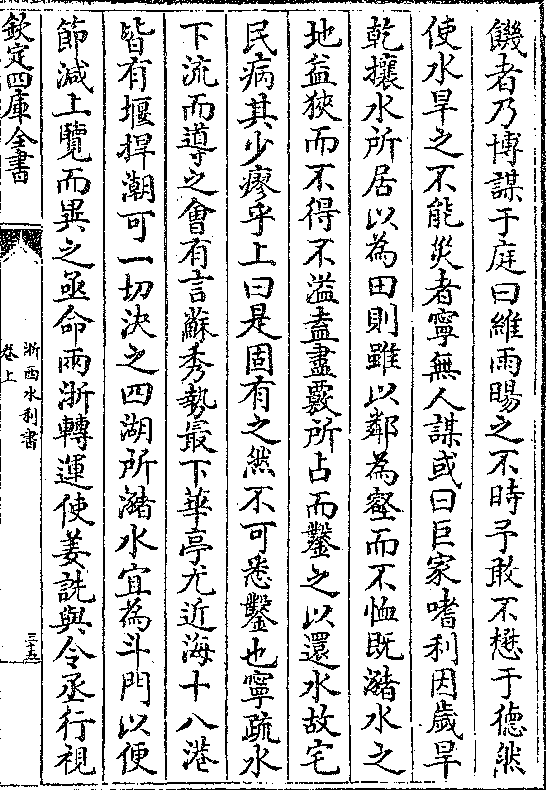 饑者乃博謀于庭曰維雨暘之不時予敢不懋于德然
使水旱之不能災者寧無人謀或曰巨家嗜利因歲旱
乾攘水所居以為田則雖以鄰為壑而不恤既瀦水之
地益狹而不得不溢盍盡覈所占而鑿之以還水故宅
民病其少瘳乎上曰是固有之然不可悉鑿也寧疏水
下流而導之會有言蘇秀勢最下華亭尤近海十八港
皆有堰捍潮可一切決之四湖所瀦水宜為斗門以便
節減上覽而異之亟命兩浙轉運使姜詵與令丞行視
欽定四庫全書
浙西水利書
卷上
三十五